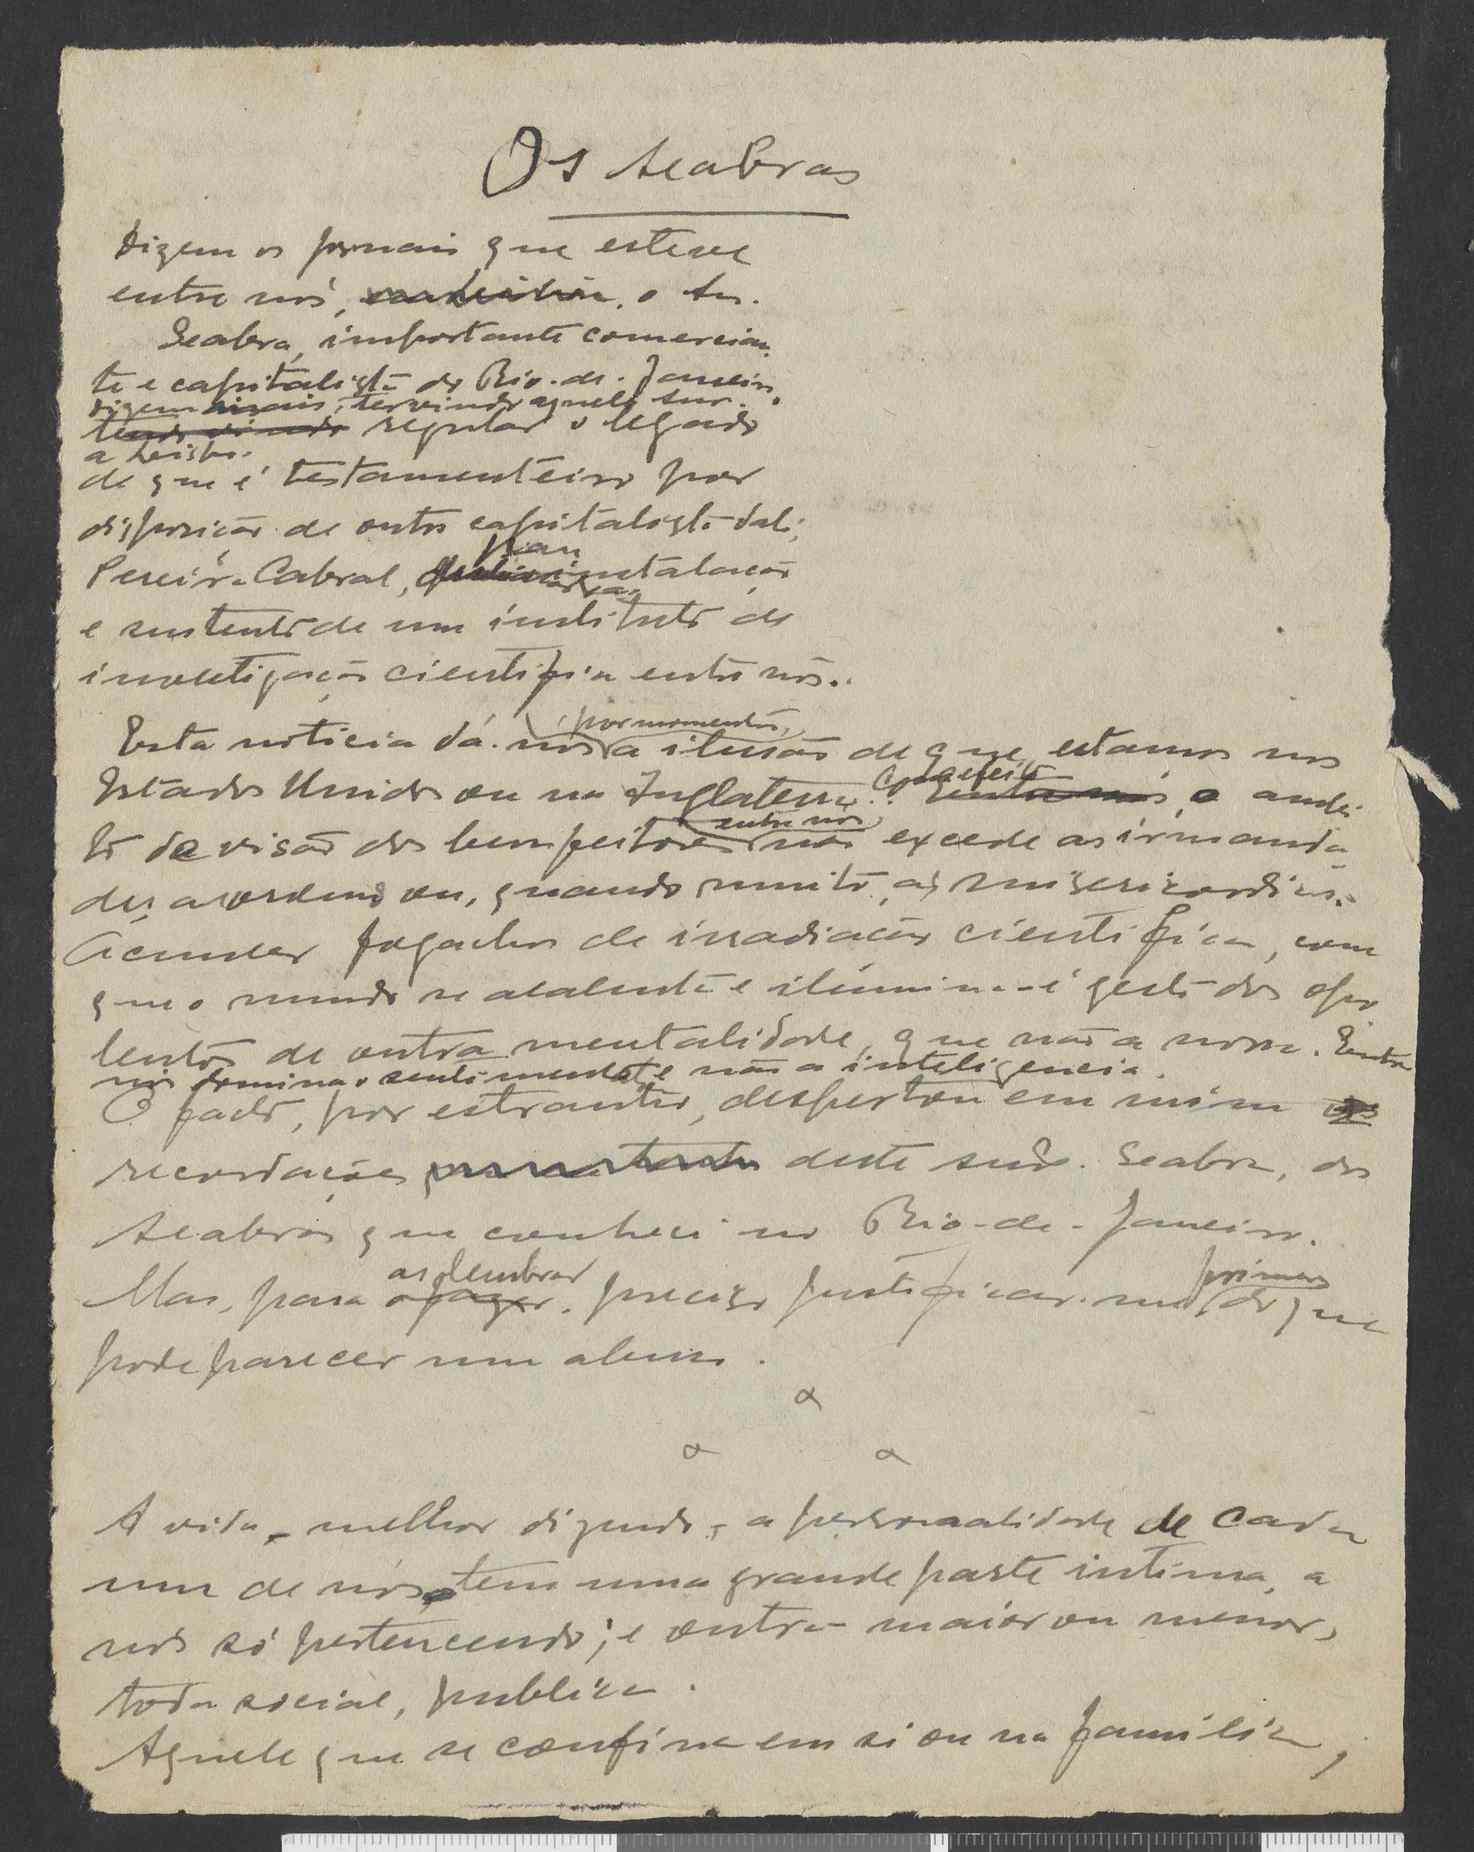 Os Seabras
Dizem os jornais que esteve
entre nós, o snr.
Seabra, importante comercian-
te e capitalista do Rio-de-Janeiro.
Dizem mais, ter vindo aquele snr.
a Lisboa
tendo vindo regular o legado
de que é testamenteiro por
disposição de outro capitalista dali,
para a
Pereira Cabral, instalação
e sustento de um instituto de
investigação cientifica entre nós.
por momentos,
Esta noticia dá-nos a ilusão de que estamos nos
Com efeito
Estados Unidos ou na Inglaterra. Entre nós o ambi-
entre nós
to de visão dos bemfeitores não excede as irmanda-
des, as ordens ou, quando muito, as misericordias.
Acender fogachos de irradiação cientifica, com
que o mundo se acalenta e ilumina é gesto dos opu-
lentos de outra mentalidade, que não a nossa. Entre
nós domina o sentimento e não a inteligencia.
O facto, por estranho, despertou em mim as
recordações deste snr. Seabra, dos
Seabras que conheci no Rio-de-Janeiro.
as lembrar primeiro
Mas, para o fazer, preciso justificar-me do que
pode parecer um abuso.
A vida, melhor dizendo, a personalidade de cada
um de nós, tem uma grande parte intima, a
nós só pertencendo; e outra maior ou menor,
toda social, publica.
Aquele que se confina em si ou na familia,